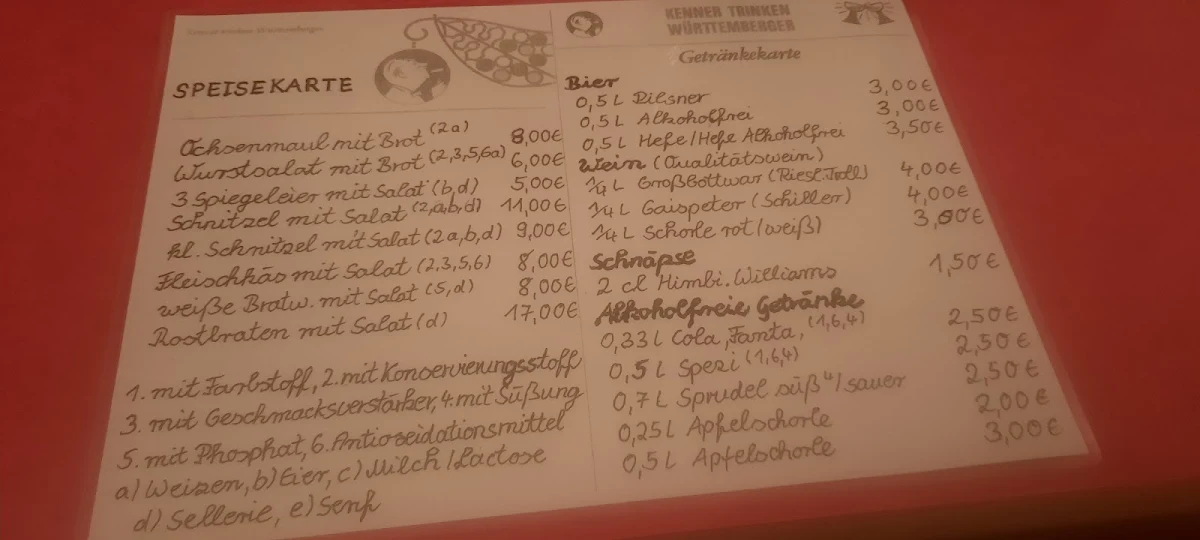 SPEISEKARTE
Ochsenmaul mit Brot (2a) 8,00€
Wurstsalat mit Brot (2,3,5,6a) 6,00€
3 Spiegeleier mit Salat (b,d) 5,00€
Schnitzel mit Salat (2,a,b,d) 11,00€
kl. Schnitzel mit Salat (2a,b,d) 9,00€
Fleischkäs mit Salat (2,3,5,6) 8,00€
weiße Bratw. mit Salat (5,d) 8,00€
Rostbraten mit Salat (d) 17,00€
1. mit Farbstoff, 2. mit Konservierungsstoff
3. mit Geschmacksverstärker, 4. mit Süßung
5. mit Phosphat, 6. Antioxidationsmittel
a) Weizen, b) Eier, c) Milch/Lactose
d) Sellerie, e) Senf
KENNER TRINKEN
WÜRTTEMBERGER
Getränkekarte
Bier
0,5 L Pilsner 3,00€
0,5 L Alkoholfrei 3,00€
0,5 L Hefe/Hefe Alkoholfrei 3,50€
Wein (Qualitätswein)
1/4 L Großbottwar (Riesl. Troll) 4,00€
1/4 L Gaispeter (Schiller) 4,00€
1/4 L Schorle rot/weiß) 3,00€
Schnäpse
2 cl Himbi. Williams 1,50€
Alkoholfreie Getränke
0,33 L Cola, Fanta, (1,6,4) 2,50€
0,5 L Spezi (1,6,4) 2,50€
0,7 L Sprudel süß 4/sauer 2,50€
0,25 L Apfelschorle 2,00€
0,5 L Apfelschorle 3,00€